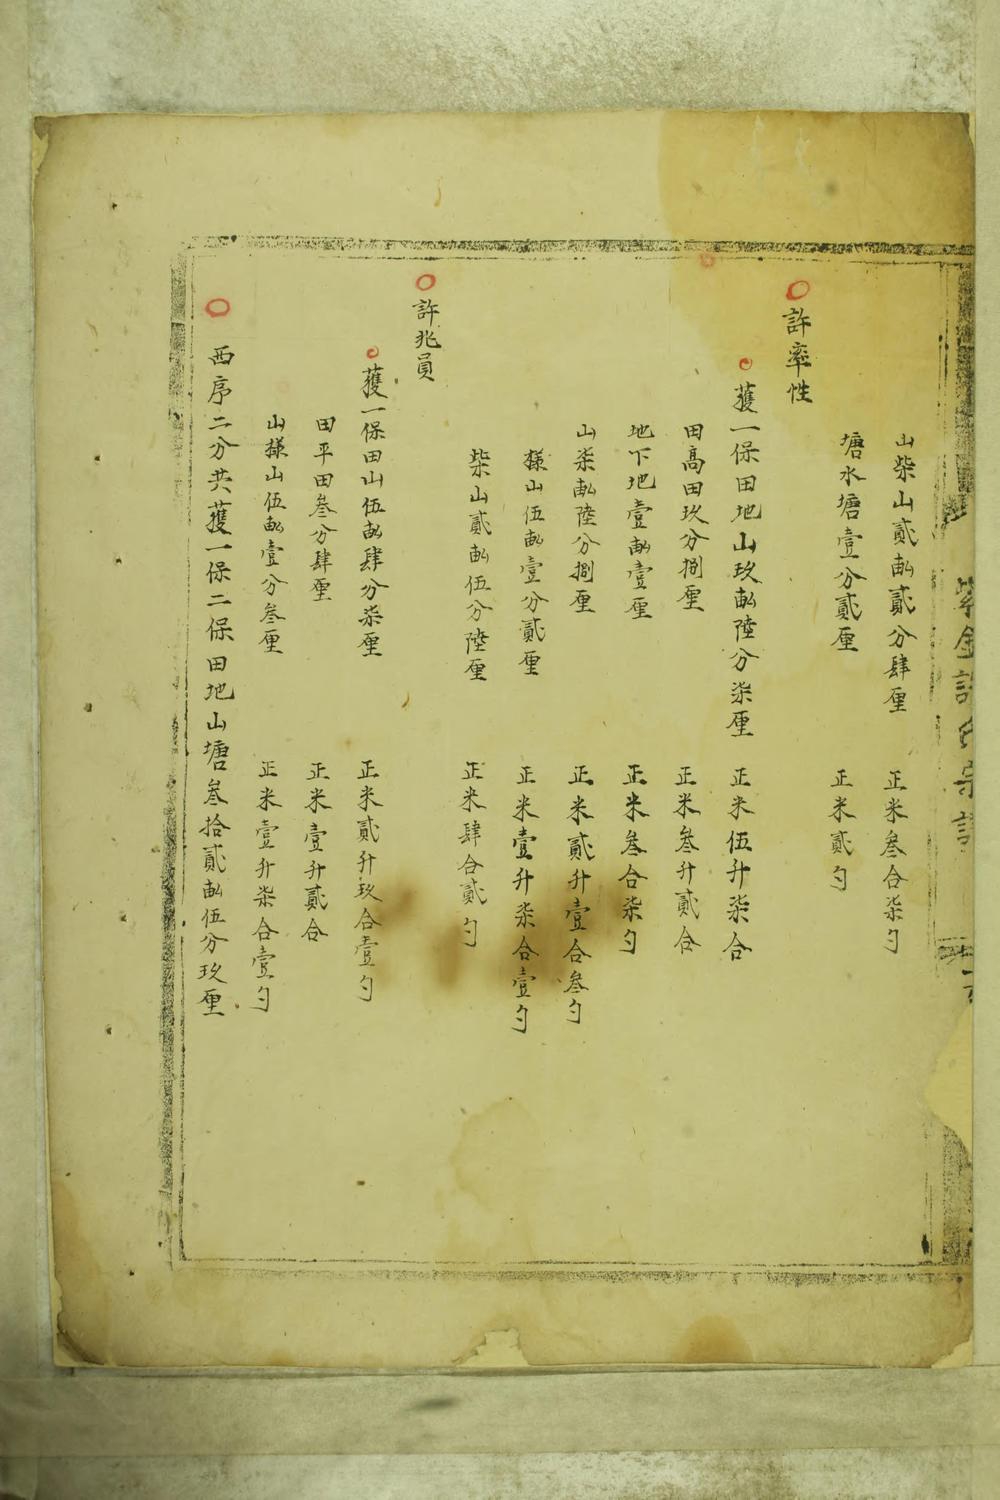 紫金許氏宗譜
山柴山貳畝貳分肆厘　正米叁合柒勺
塘水塘壹分貳厘　正米貳勺
許率性
獲一保田地山玖畝陸分柒厘　正米伍升柒合
田高田玖分捌厘　正米叁升貳合
地下地壹畝壹厘　正米叁合柒勺
山柒畝陸分捌厘　正米貳升壹合叁勺
㯶山伍畝壹分貳厘　正米壹升柒合壹勺
柴山貳畝伍分陸厘　正米肆合貳勺
許兆員
獲一保田山伍畝肆分柒厘　正米貳升玖合壹勺
田平田叁分肆厘　正米壹升貳合
山㯶山伍畝壹分叁厘　正米壹升柒合壹勺
西序二分共獲一保二保田地山塘叁拾貳畝伍分玖厘